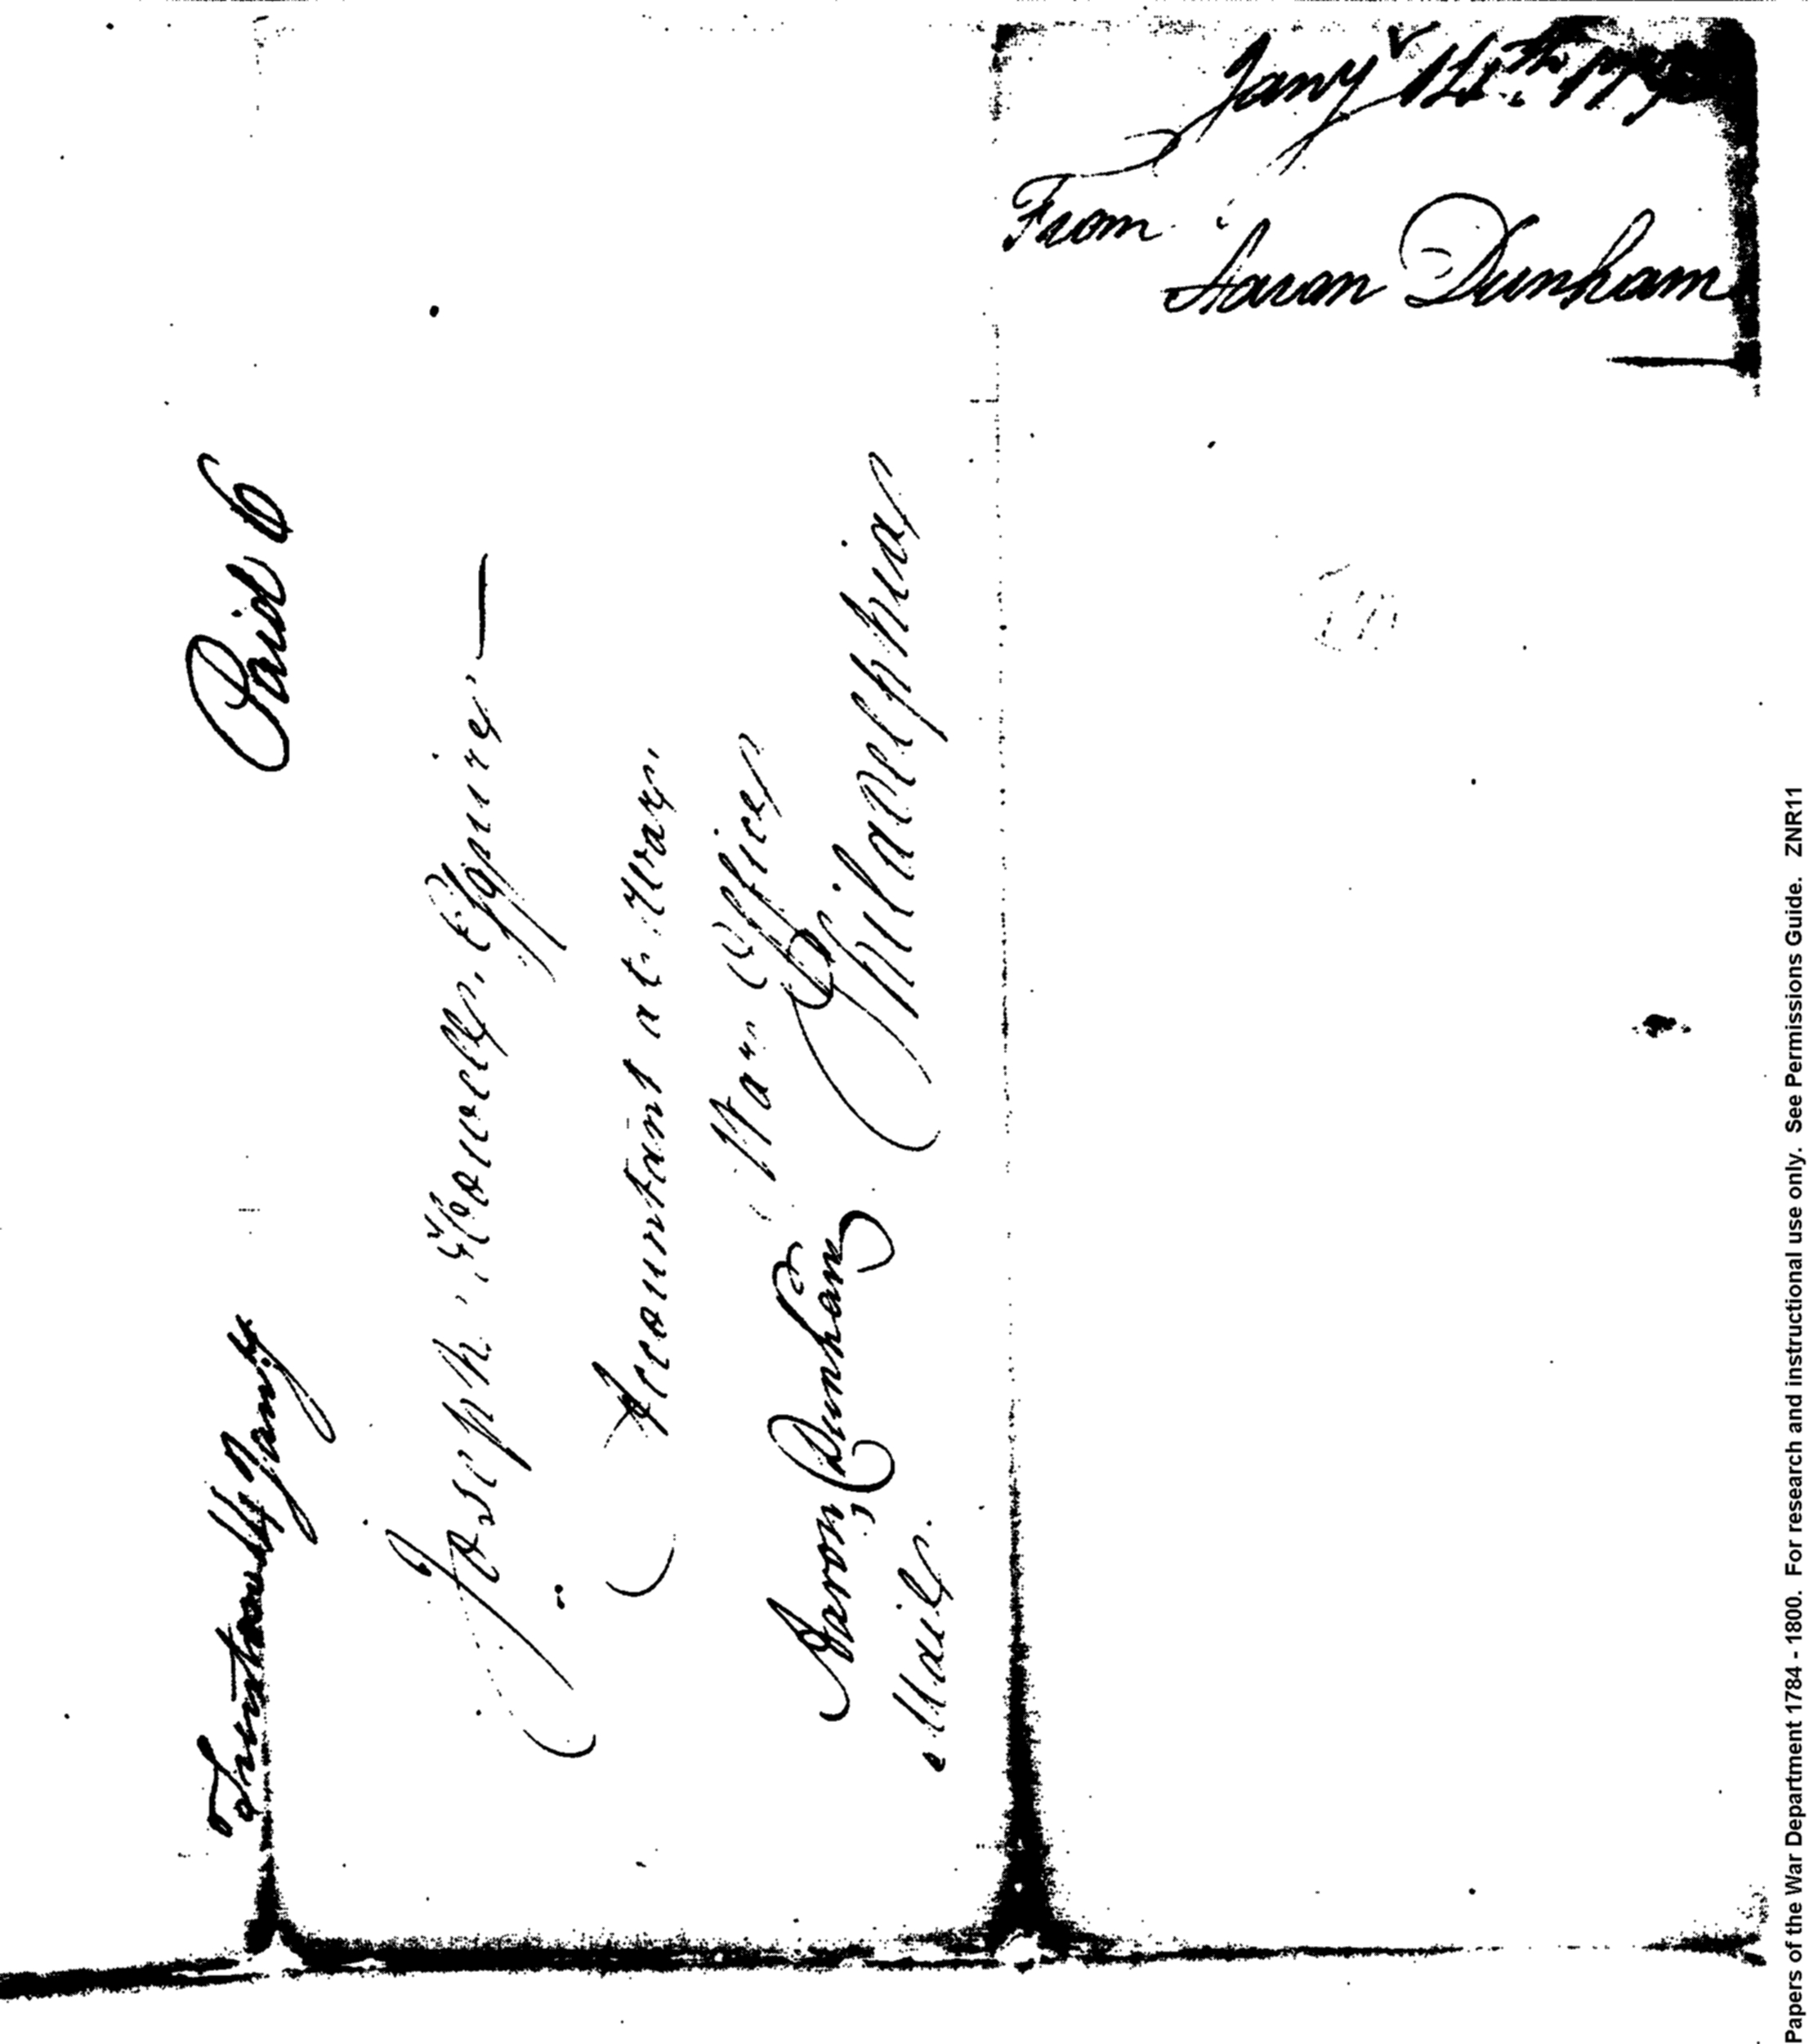 Jany 14th 179
From
Aaron Dunham
Paid 6
Jany
Joseph Howell, Esquire —
Accountant at War
War Office
Philadelphia
Aaron Dunham
Mail.
Papers of the War Department 1784 - 1800. For research and instructional use only. See Permissions Guide. ZNR11